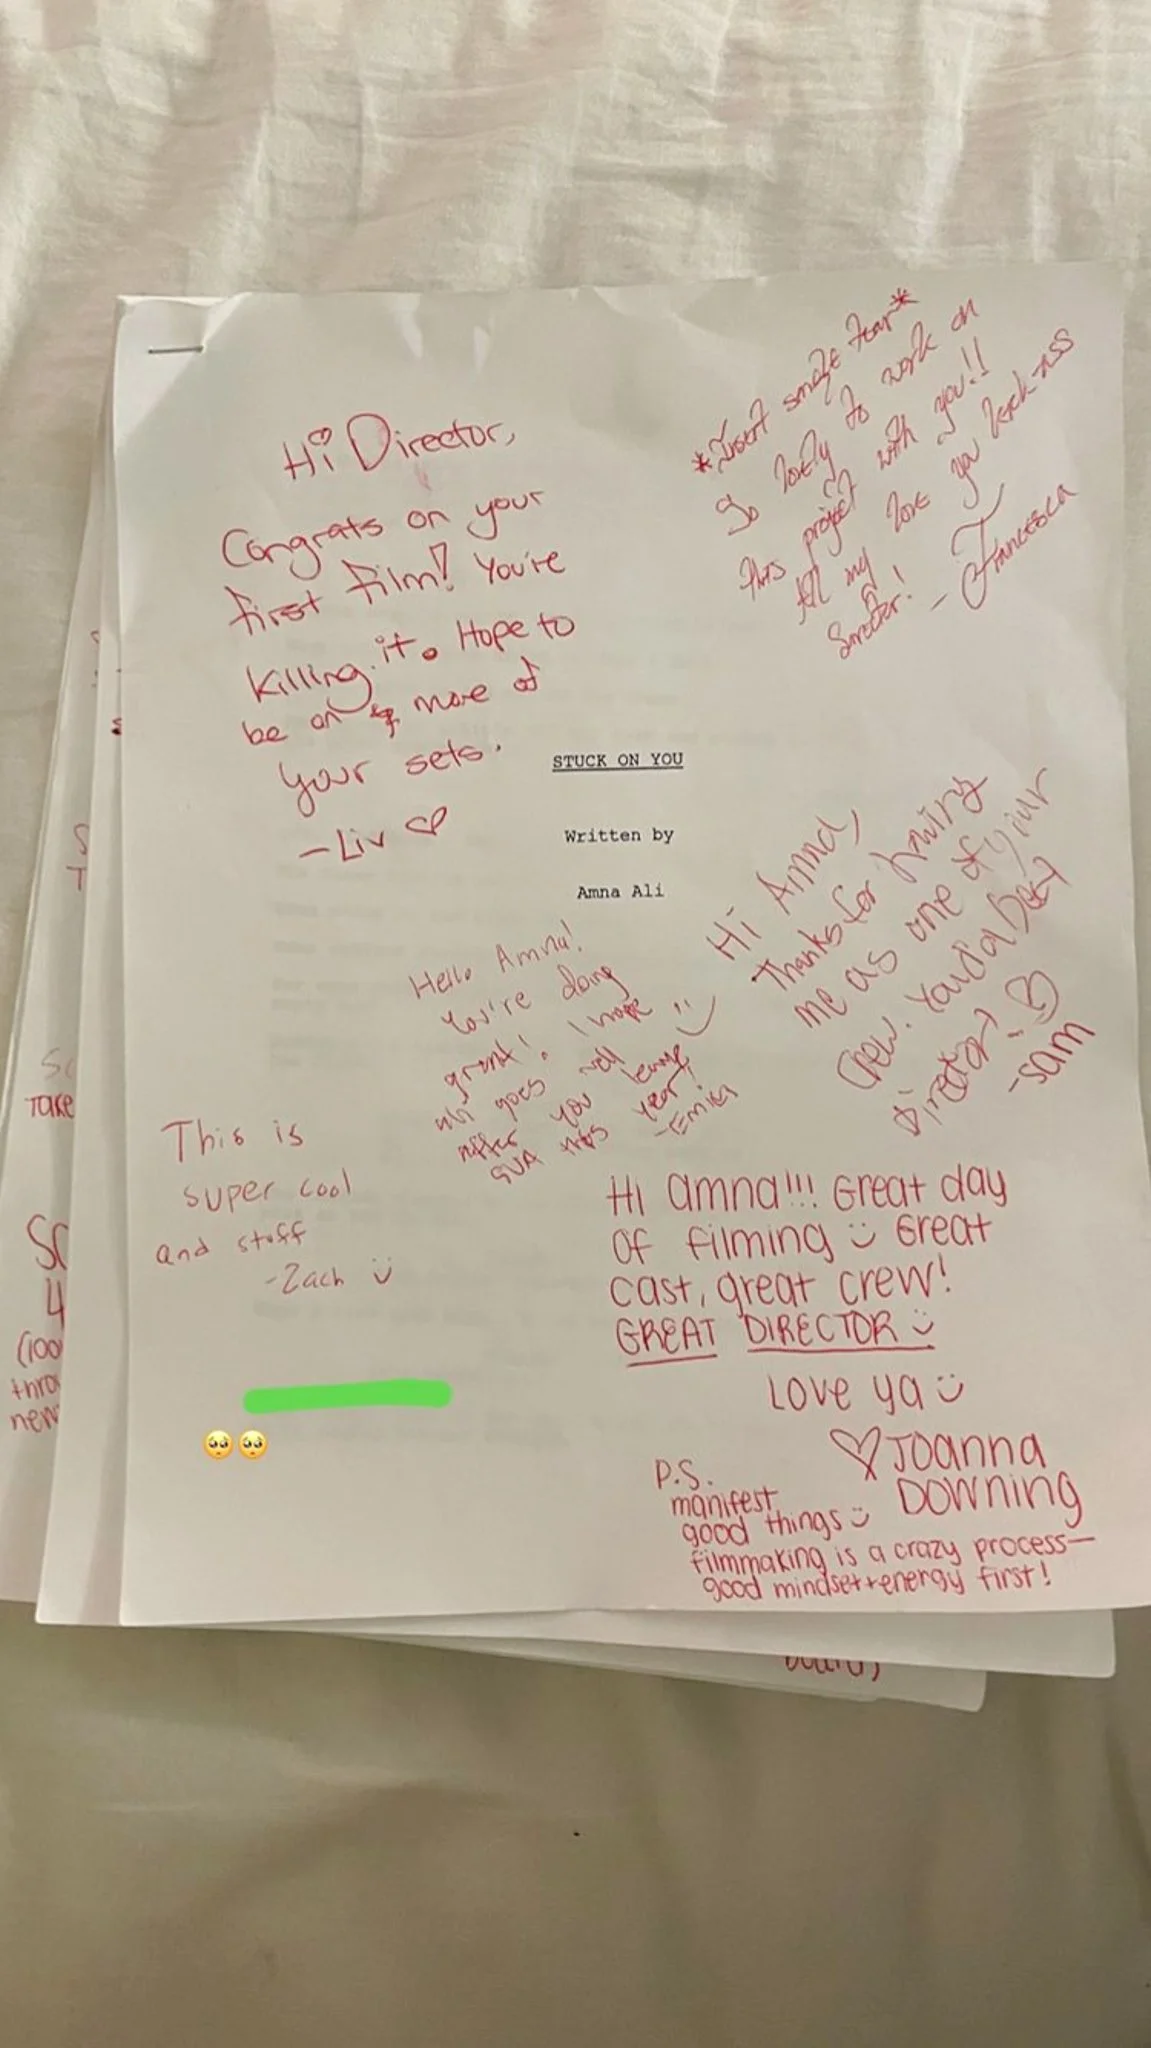 Hi Director,
Congrats on your
first film! You're
killing it. Hope to
be on more of
your sets.
-Liv ♡
*Insert single tear*
So lovely to work on
this project with you!!
All my love you kick-ass
Director!
- Francesca
STUCK ON YOU
Written by
Amna Ali
Hi Amna,
Thanks for having
me as one of your
crew. You'd a bad
Director! ♡
-Sam
Hello Amna!
You're doing
great! I hope
all goes well
after you leave
SVA this year!
-Emily
This is
super cool
and stuff
-Zach :)
Hi Amna!!! Great day
of filming :) Great
cast, great crew!
GREAT DIRECTOR :)
Love ya :)
♡ Joanna
Downing
P.S.
manifest
good things :)
filmmaking is a crazy process—
good mindset+energy first!
🥺🥺
Take
4
(100
thro
new